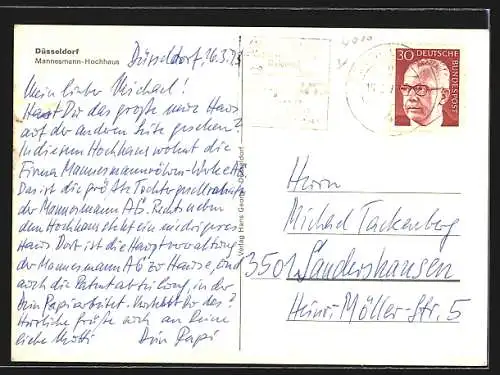 Düsseldorf
Mannesmann-Hochhaus
Düsseldorf, 16.3.73
Mein lieber Michael!
Hast Du das große neue Haus
auf der anderen Seite gesehen?
In diesem Hochhaus wohnt die
Firma Mannesmannröhren-Werke AG.
Das ist die größte Tochtergesellschaft
der Mannesmann AG. Rechts neben
dem Hochhaus steht ein niedrigeres
Haus. Dort ist die Hauptverwaltung
der Mannesmann AG zu Hause, und
auch die Patentabteilung, in der
Dein Papi arbeitet. Verstehst Du das?
Herzliche Grüße auch an Deine
liebe Mutti Dein Papi
Verlag Hans Georg Düsseldorf
30 DEUTSCHE
BUNDESPOST
Herrn
Michael Tackenberg
3501 Sandershausen
Heinr. Möller-Str. 5